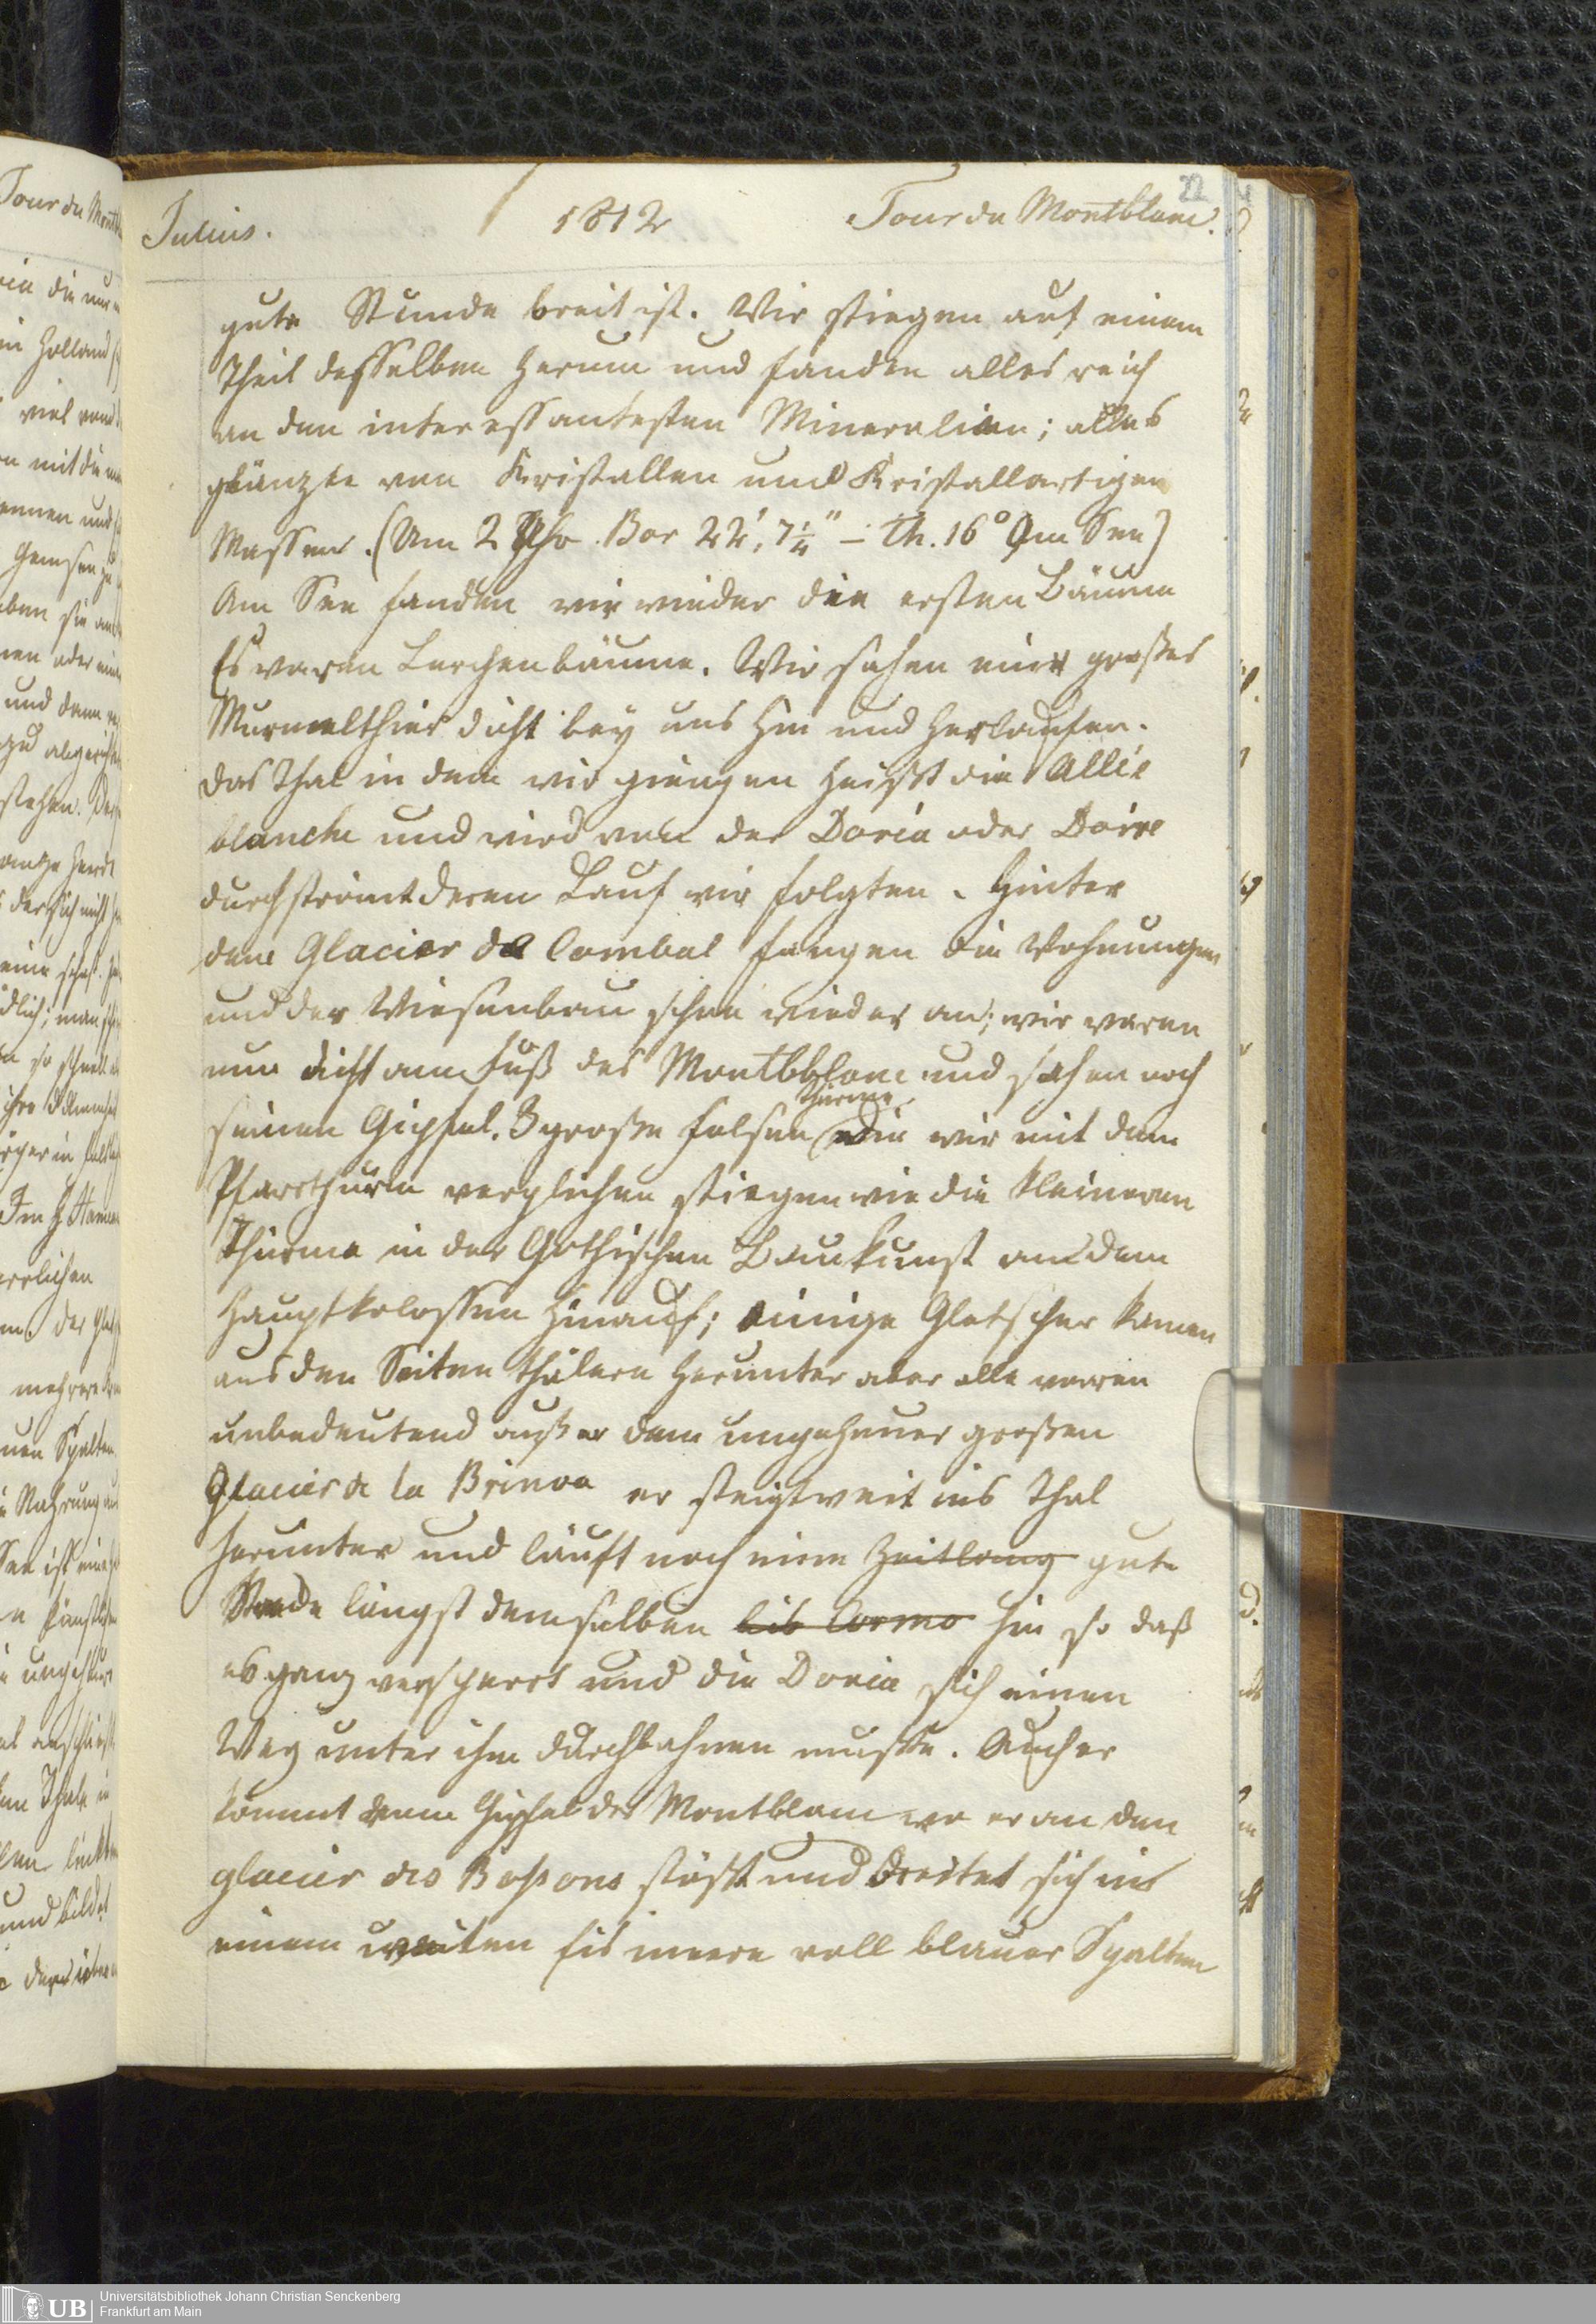 Julius. 1812 Tour du Montblanc. 22
gute Stunde breit ist. Wir stiegen auf einem
Theil desselben herum und fanden alles reich
an den interessantesten Mineralien; alles
glänzte von Kristallen und Kristallartigen
Massen. (Um 2 Uhr. Bar 22', 7¼" – Th. 16° Am See)
Am See fanden wir wieder die ersten Bäume
Es waren Lerchenbäume. Wir sahen ein großes
Murmelthier dicht bey uns hin und herlaufen.
das Thal in dem wir giengen heißt die Allée
blanche und wird von der Doria oder Doire
durchströmt deren Lauf wir folgten. Hinter
dem Glacier de Combal fangen die Wohnungen
und der Wiesenbau schon wieder an; wir waren
nun dicht am Fuß des Montblanc und sahen noch
seinen Gipfel. 3 große Felsen
Thürme
die wir mit dem
Pfarrthurm verglichen stiegen wie die kleineren
Thürme in der Gothischen Baukunst an dem
Hauptkolossen hinauf; einige Gletscher kamen
aus den Seiten thälern herunter aber alle waren
unbedeutend außer dem ungeheuer großen
Glacier de la Brinva er steigt weit ins Thal
herunter und läuft noch eine Zeitlang gute
Stunde längst demselben bis Cormo hin so daß
es ganz versperrt und die Doria sich einen
Weg unter ihm durchbahnen mußte. Auch er
kömmt vom Gipfel des Montblanc wo er an den
glacier des Bossons stößt und breitet sich in
einem weiten Eis meere voll blauer Spalten
Tour du Montbl
in Holland
viel
mit die
und
Gemsen
oder
und dann
stehen.
der sich nicht
eine
man
mehrere
Spalten
Nahrung
See ist
Thale
und bildet
UB
Universitätsbibliothek Johann Christian Senckenberg
Frankfurt am Main